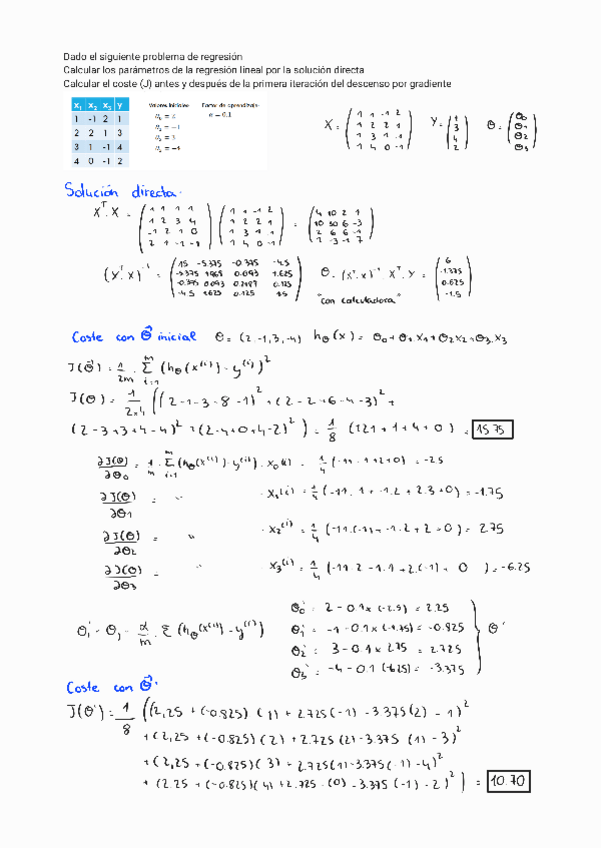 Dado el siguiente problema de regresión
Calcular los parámetros de la regresión lineal por la solución directa
Calcular el coste (J) antes y después de la primera iteración del descenso por gradiente
x1 x2 x3 y
1 -1 2 1
2 2 1 3
3 1 -1 4
4 0 -1 2
Valores iniciales
θ0 = 2
θ1 = -1
θ2 = 3
θ3 = -4
Factor de aprendizaje
α = 0.1
X = (1 1 -1 2
1 2 2 1
1 3 1 -1
1 4 0 -1)
Y = (1
3
4
2)
Θ = (Θ0
Θ1
Θ2
Θ3)
Solución directa.
X^T·X = (1 1 1 1
1 2 3 4
-1 2 1 0
2 1 -1 -1)
(1 1 -1 2
1 2 2 1
1 3 1 -1
1 4 0 -1)
= (4 10 2 1
10 30 6 -3
2 6 6 -1
1 -3 -1 7)
(X^T·X)^-1 = (15 -5.375 -0.375 -4.5
-5.375 1.968 0.093 1.625
-0.375 0.093 0.2187 0.125
-4.5 1.625 0.125 1.5)
Θ = (X^T·X)^-1 X^T·Y = (6
-1.375
0.625
-1.5)
"con calculadora"
Coste con Θ inicial Θ = (2,-1,3,-4) hΘ(x) = Θ0+Θ1·X1+Θ2X2+Θ3·X3
J(Θ) = 1/2m · Σ i=1 m (hΘ(x^(i)) - y^(i))^2
J(Θ) = 1/2×4 ((2-1-3-8-1)^2 + (2-2+6-4-3)^2 +
(2-3+3+4-4)^2 + (2-4+0+4-2)^2) = 1/8 (121+1+4+0) = 15.75
∂J(Θ)/∂Θ0 = 1/m · Σ i=1 m (hΘ(x^(i)) - y^(i)) · X0(i) = 1/4 (-11-1+2+0) = -2.5
∂J(Θ)/∂Θ1 = " · X1(i) = 1/4 (-11·1 + -1·2 + 2·3 + 0) = -1.75
∂J(Θ)/∂Θ2 = " · X2^(i) = 1/4 (-11·(-1) + -1·2 + 2 + 0) = 2.75
∂J(Θ)/∂Θ3 = " · X3^(i) = 1/4 (-11·2 - 1·1 + 2·(-1) + 0) = -6.25
Θj' = Θj - α/m · Σ (hΘ(x^(i)) - y^(i))
Θ0' = 2 - 0.1×(-2.5) = 2.25
Θ1' = -1 - 0.1×(-1.75) = -0.825
Θ2' = 3 - 0.1×2.75 = 2.725
Θ3' = -4 - 0.1(-6.25) = -3.375
Θ'
Coste con Θ'
J(Θ') = 1/8 ((2,25 + (-0.825)(1) + 2.725(-1) - 3.375(2) - 1)^2
+ (2,25 + (-0.825)(2) + 2.725(2) - 3.375(1) - 3)^2
+ (2,25 + (-0.825)(3) + 2.725(1) - 3.375(-1) - 4)^2
+ (2.25 + (-0.825)(4) + 2.725·(0) - 3.375(-1) - 2)^2) = 10.70